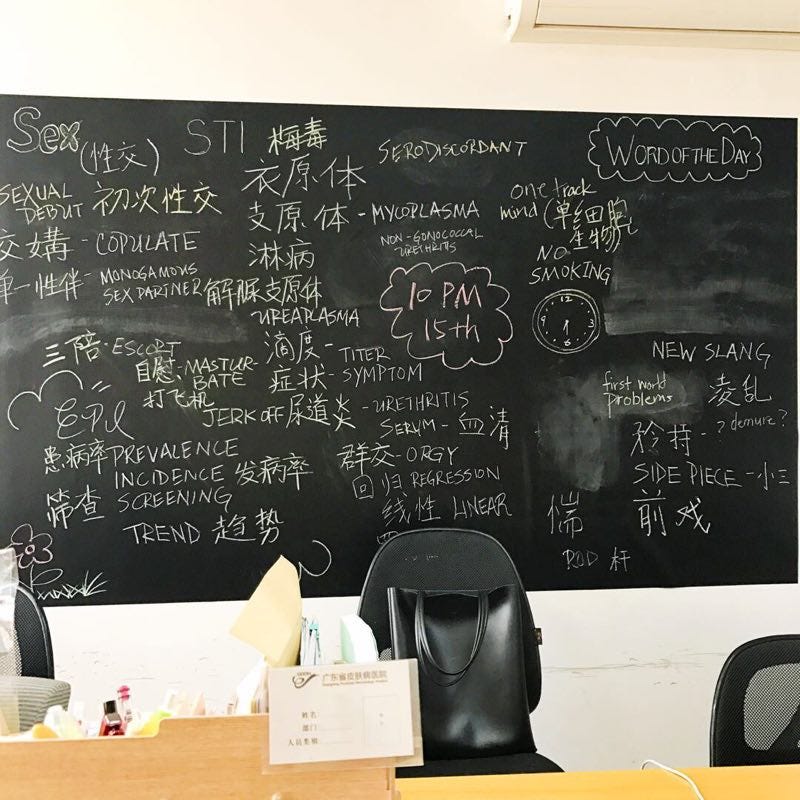 Sex
(性交)
STI 梅毒
SERODISCORDANT
WORD OF THE DAY
SEXUAL
DEBUT 初次性交
衣原体
支原体 - MYCOPLASMA
NON-GONOCOCCAL
URETHRITIS
one track
mind (单细胞
生物)
交媾 - COPULATE
淋病
NO
SMOKING
单一性伴 - MONOGAMOUS
SEX PARTNER
解脲支原体
UREAPLASMA
10 PM
15th
12
9
3
6
三陪 - ESCORT
自慰 - MASTUR-
BATE
打飞机
JERK OFF
滴度 - TITER
症状 - SYMPTOM
尿道炎 - URETHRITIS
SERUM - 血清
NEW SLANG
first world
problems
凌乱
矜持 - ? demure?
SIDE PIECE - 小三
前戏
EPI
患病率 PREVALENCE
INCIDENCE 发病率
筛查 SCREENING
TREND 趋势
群交 - ORGY
回归 REGRESSION
线性 LINEAR
惴
ROD 杆
广东省皮肤病医院
姓名:
部门:
人员类别: